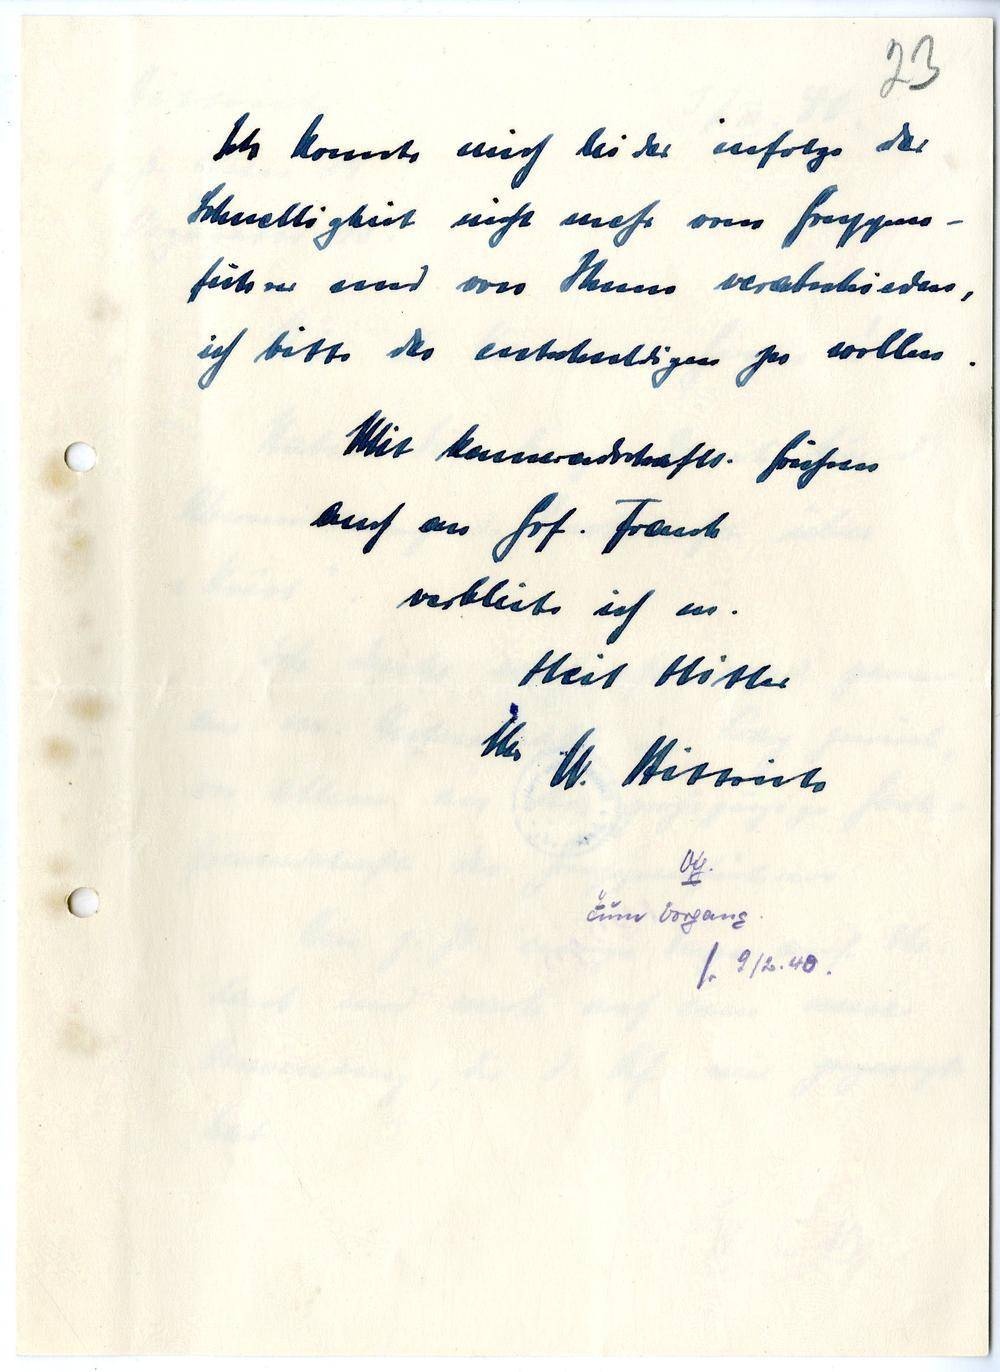 23
Ich konnte mich leider infolge der
Schnelligkeit nicht mehr vom Gruppen-
führer und von Ihnen verabschieden,
ich bitte das entschuldigen zu wollen.
Mit kameradschaftl. Grüßen
auch an Grf. Frank
verbleibe ich m.
Heil Hitler
Ihr W. Hittrich
Vg.
Zum Vorgang.
9/2.40.